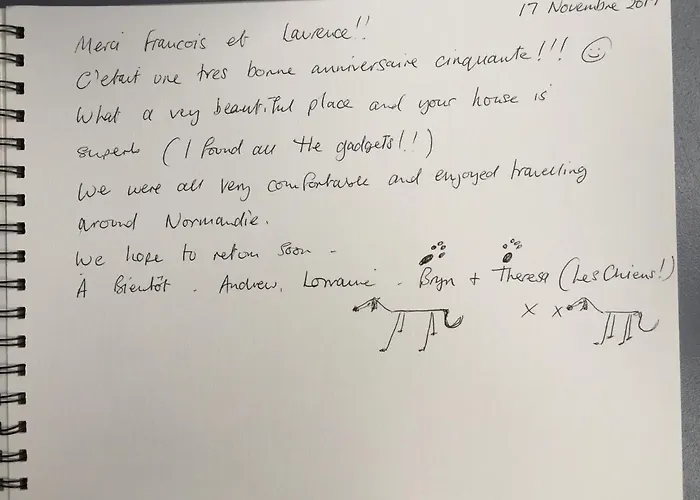 17 Novembre
Merci Francois et Laurence!!
C'etait une tres bonne anniversaire cinquante!!!
What a very beautiful place and your house is
superb (I found all the gadgets!!)
We were all very comfortable and enjoyed travelling
around Normandie.
We hope to return soon -
À Bientôt - Andrew, Lorraine - Bryn + Theresa (Les Chiens!)
x x